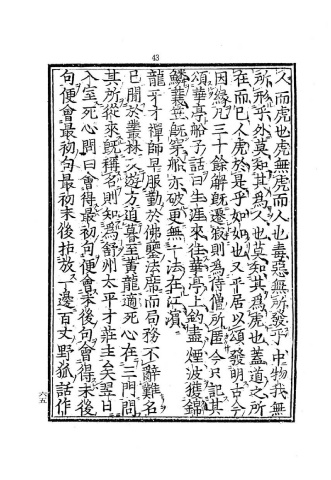 43
人而虎也虎無虎而人也毒惡無所發乎中物我無
所形乎外莫知其爲人也莫知其爲虎也蓋道之所
在而已人虎於是乎如如也又平居以頌發明古今
因緣凡三十餘解旣遷寂則爲侍僧所匿今只記其
頌華亭船子話曰生涯來往華亭上釣盡煙波獲錦
鱗蓑笠旣穿船亦破更無一法在江濱
龍牙才禪師早服勤於佛鑒法席而局務不辭難名
已聞於叢林久遊方迫暮至黃龍適死心在三門問
其所從來旣稱名則知爲舒州太平才莊主矣翌日
入室死心問曰會得最初句便會末後句會得末後
句便會最初句最初末後拈放一邊百丈野狐話作
六五